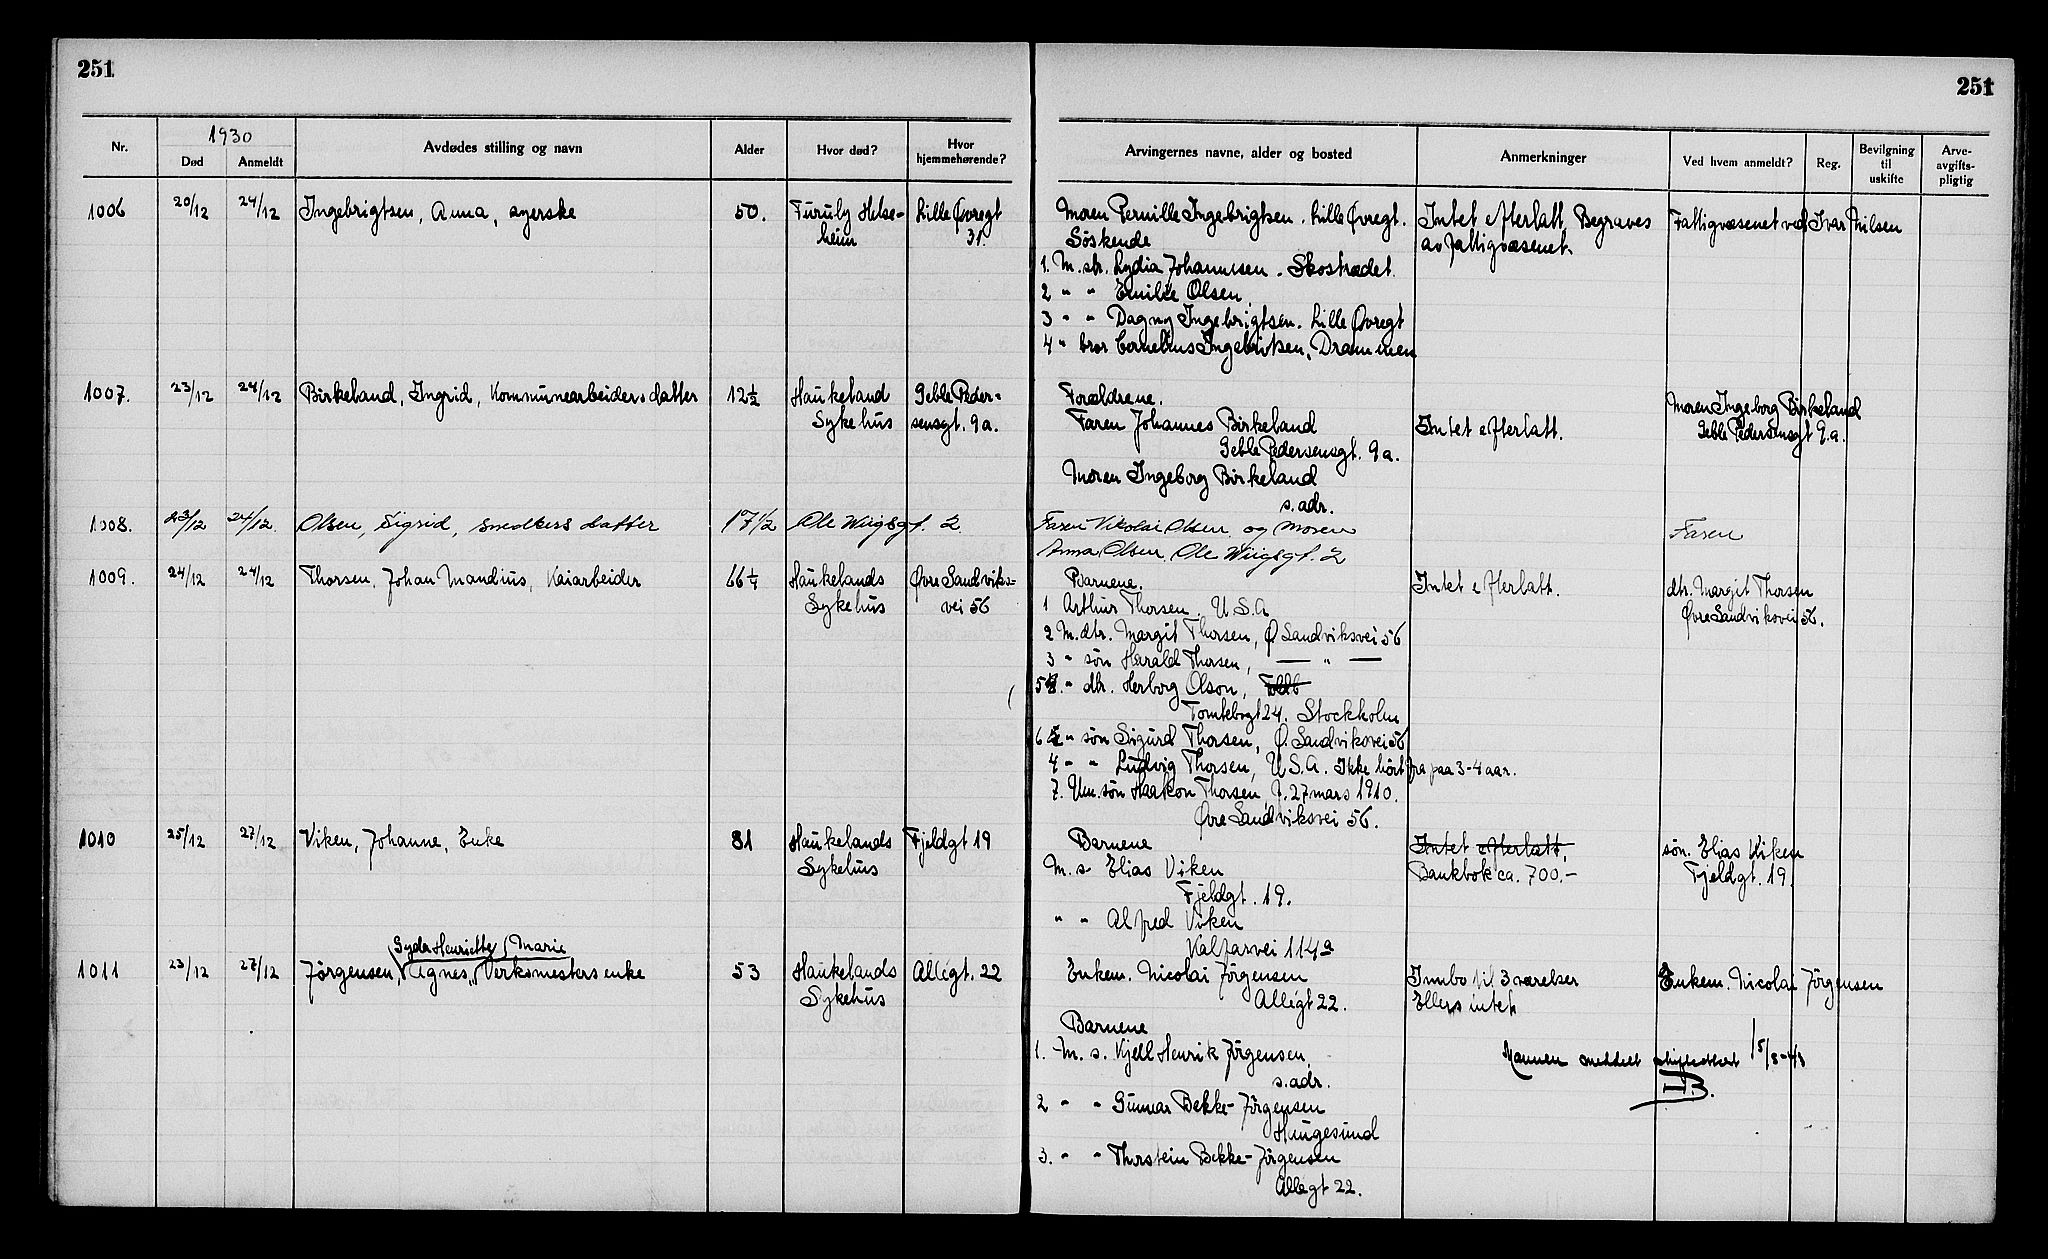 251
251
Nr.
1930
Død
Anmeldt
Avdødes stilling og navn
Alder
Hvor død?
Hvor hjemmehørende?
Arvingernes navne, alder og bosted
Anmerkninger
Ved hvem anmeldt?
Reg.
Bevilgning til uskifte
Arve-avgifts-pligtig
1006 20/12 24/12 Ingebrigtsen, Anna, syerske 50. Furuly Helse- Lille Øvregt
heim 31.
Moren Pernille Ingebrigtsen. Lille Øvregt. Intet efterlatt. Begraves Fattigvæsenet ved Ivar Nilsen
Söskende av fattigvæsenet.
1. M. str. Lydia Johannesen. Skostrædet.
2 " " Emilie Olsen.
3 " " Dagny Ingebrigtsen. Lille Øvregt
4 " bror Cornelius Ingebritsen, Drammen
1007. 23/12 24/12 Birkeland, Ingrid, Kommunearbeiders datter 12½ Haukeland Geble Peder-
Sykehus sensgt. 9a.
Forældrene. Moren Ingeborg Birkeland
Faren Johannes Birkeland Intet efterlatt. Geble Pedersensgt 9.a.
Geble Pedersensgt. 9a.
Moren Ingeborg Birkeland
s. adr.
1008. 23/12 24/12. Olsen, Sigrid, snedkers datter 17½ Ole Wiigsgt. 2
Faren Nikolai Olsen og Moren Faren
Anna Olsen. Ole Wiigsgt. 2
1009. 24/12 24/12 Thorsen, Johan Mandius, Kaiarbeider 66¼ Haukelands Øvre Sandviks-
Sykehus vei 56
Barnene. Intet efterlatt. dtr. Margit Thorsen
1 Arthur Thorsen. U.S.A Øvre Sandviksvei 56.
2 M. dtr. Margit Thorsen, Ø Sandviksvei 56
3 " sön Harald Thorsen, — " —
5 " dtr. Herborg Olson,
Tomtebogt 24. Stockholm
6 " sön Sigurd Thorsen, Ø. Sandviksvei 56
4 " " Ludvig Thorsen, U.S.A. Ikke hört fra paa 3-4 aar.
7. Um. sön Haakon Thorsen f. 27 mars 1910.
Øvre Sandviksvei 56.
1010 25/12 27/12 Viken, Johanne, Enke 81 Haukelands Fjeldgt 19
Sykehus
Barnene Intet efterlatt. sön. Elias Viken
M. s. Elias Viken Bankbok ca. 700.- Fjeldgt. 19.
Fjeldgt. 19.
" " Alfred Viken
Kalfarvei 114a
Gyda Henriette Marie
1011 23/12 27/12 Jörgensen, Agnes, Verksmesters enke 53 Haukelands Allégt. 22
Sykehus
Enkem. Nicolai Jörgensen Innbo til 3 værelser Enkem. Nicolai Jörgensen
Allégt 22. Ellers intet.
Barnene
1. M. s. Kjell Henrik Jörgensen Mannen meddelt skifteattest 15/8-41
s. adr.
2 " " Gunnar Bekke-Jörgensen
Haugesund
3. " " Thorstein Bekke-Jörgensen
Allegt 22.